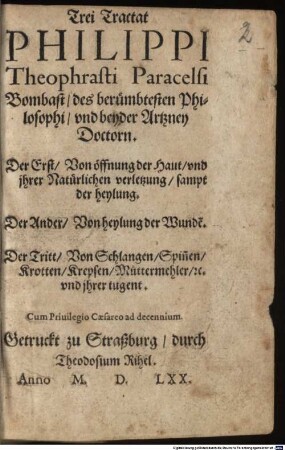 Trei Tractat
2
PHILIPPI
Theophrasti Paracelsi
Bombast / des berümbtesten Phi-
losophi / vnd beyder Artzney
Doctorn.
Der Erst / Von öffnung der Haut / vnd
jhrer Natürlichen verletzung / sampt
der heylung.
Der Ander / Von heylung der Wundẽ.
Der Tritt / Von Schlangen / Spiñen /
Krotten / Krepsen / Müttermehler / ꝛc.
vnd jhrer tugent.
Cum Priuilegio Cæsareo ad decennium.
Getruckt zu Straßburg / durch
Theodosium Rihel.
Anno M. D. LXX.